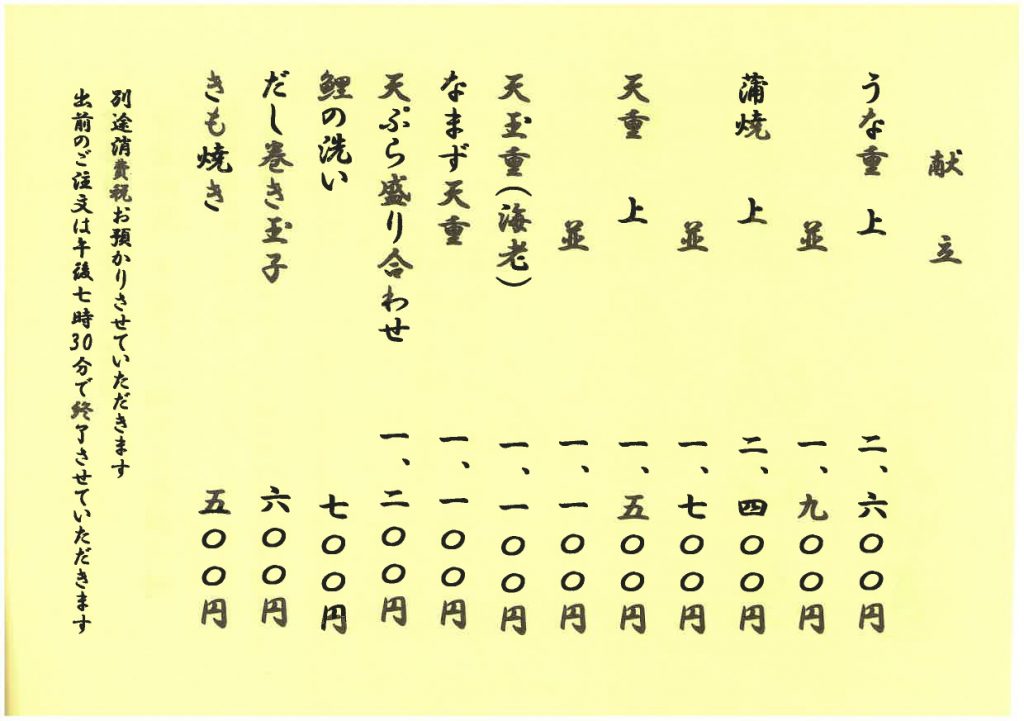 献立
うな重 上 二、六〇〇円
並 一、九〇〇円
蒲焼 上 二、四〇〇円
並 一、七〇〇円
天重 上 一、五〇〇円
並 一、一〇〇円
天玉重(海老) 一、一〇〇円
なまず天重 一、一〇〇円
天ぷら盛り合わせ 一、二〇〇円
鯉の洗い 七〇〇円
だし巻き玉子 六〇〇円
きも焼き 五〇〇円
別途消費税お預かりさせていただきます
出前のご注文は午後七時30分で終了させていただきます